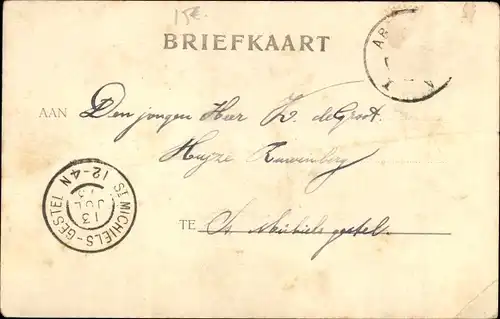 15€
BRIEFKAART
AR
AAN Den jongen Heer W. de Groot.
Huize Ruwenberg
TE St Michiels gestel.
ST MICHIELS-GESTEL
12-4N
13
JUL